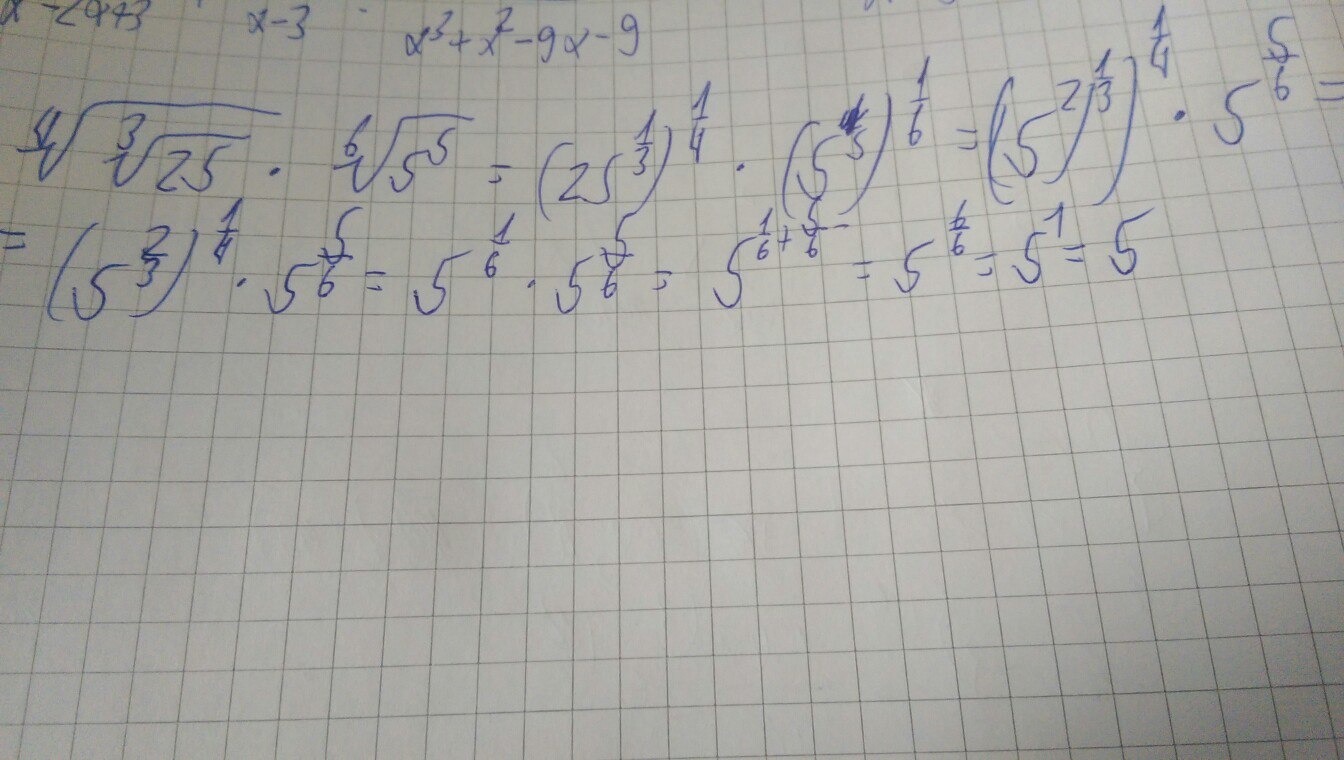 x-3 x³+x²-9x-9
⁴√(³√25) · ⁶√(5⁵) = (25^(1/3))^(1/4) · (5^5)^(1/6) = ((5²)^(1/3))^(1/4) · 5^(5/6) =
= (5^(2/3))^(1/4) · 5^(5/6) = 5^(1/6) · 5^(5/6) = 5^(1/6+5/6) = 5^(6/6) = 5¹ = 5